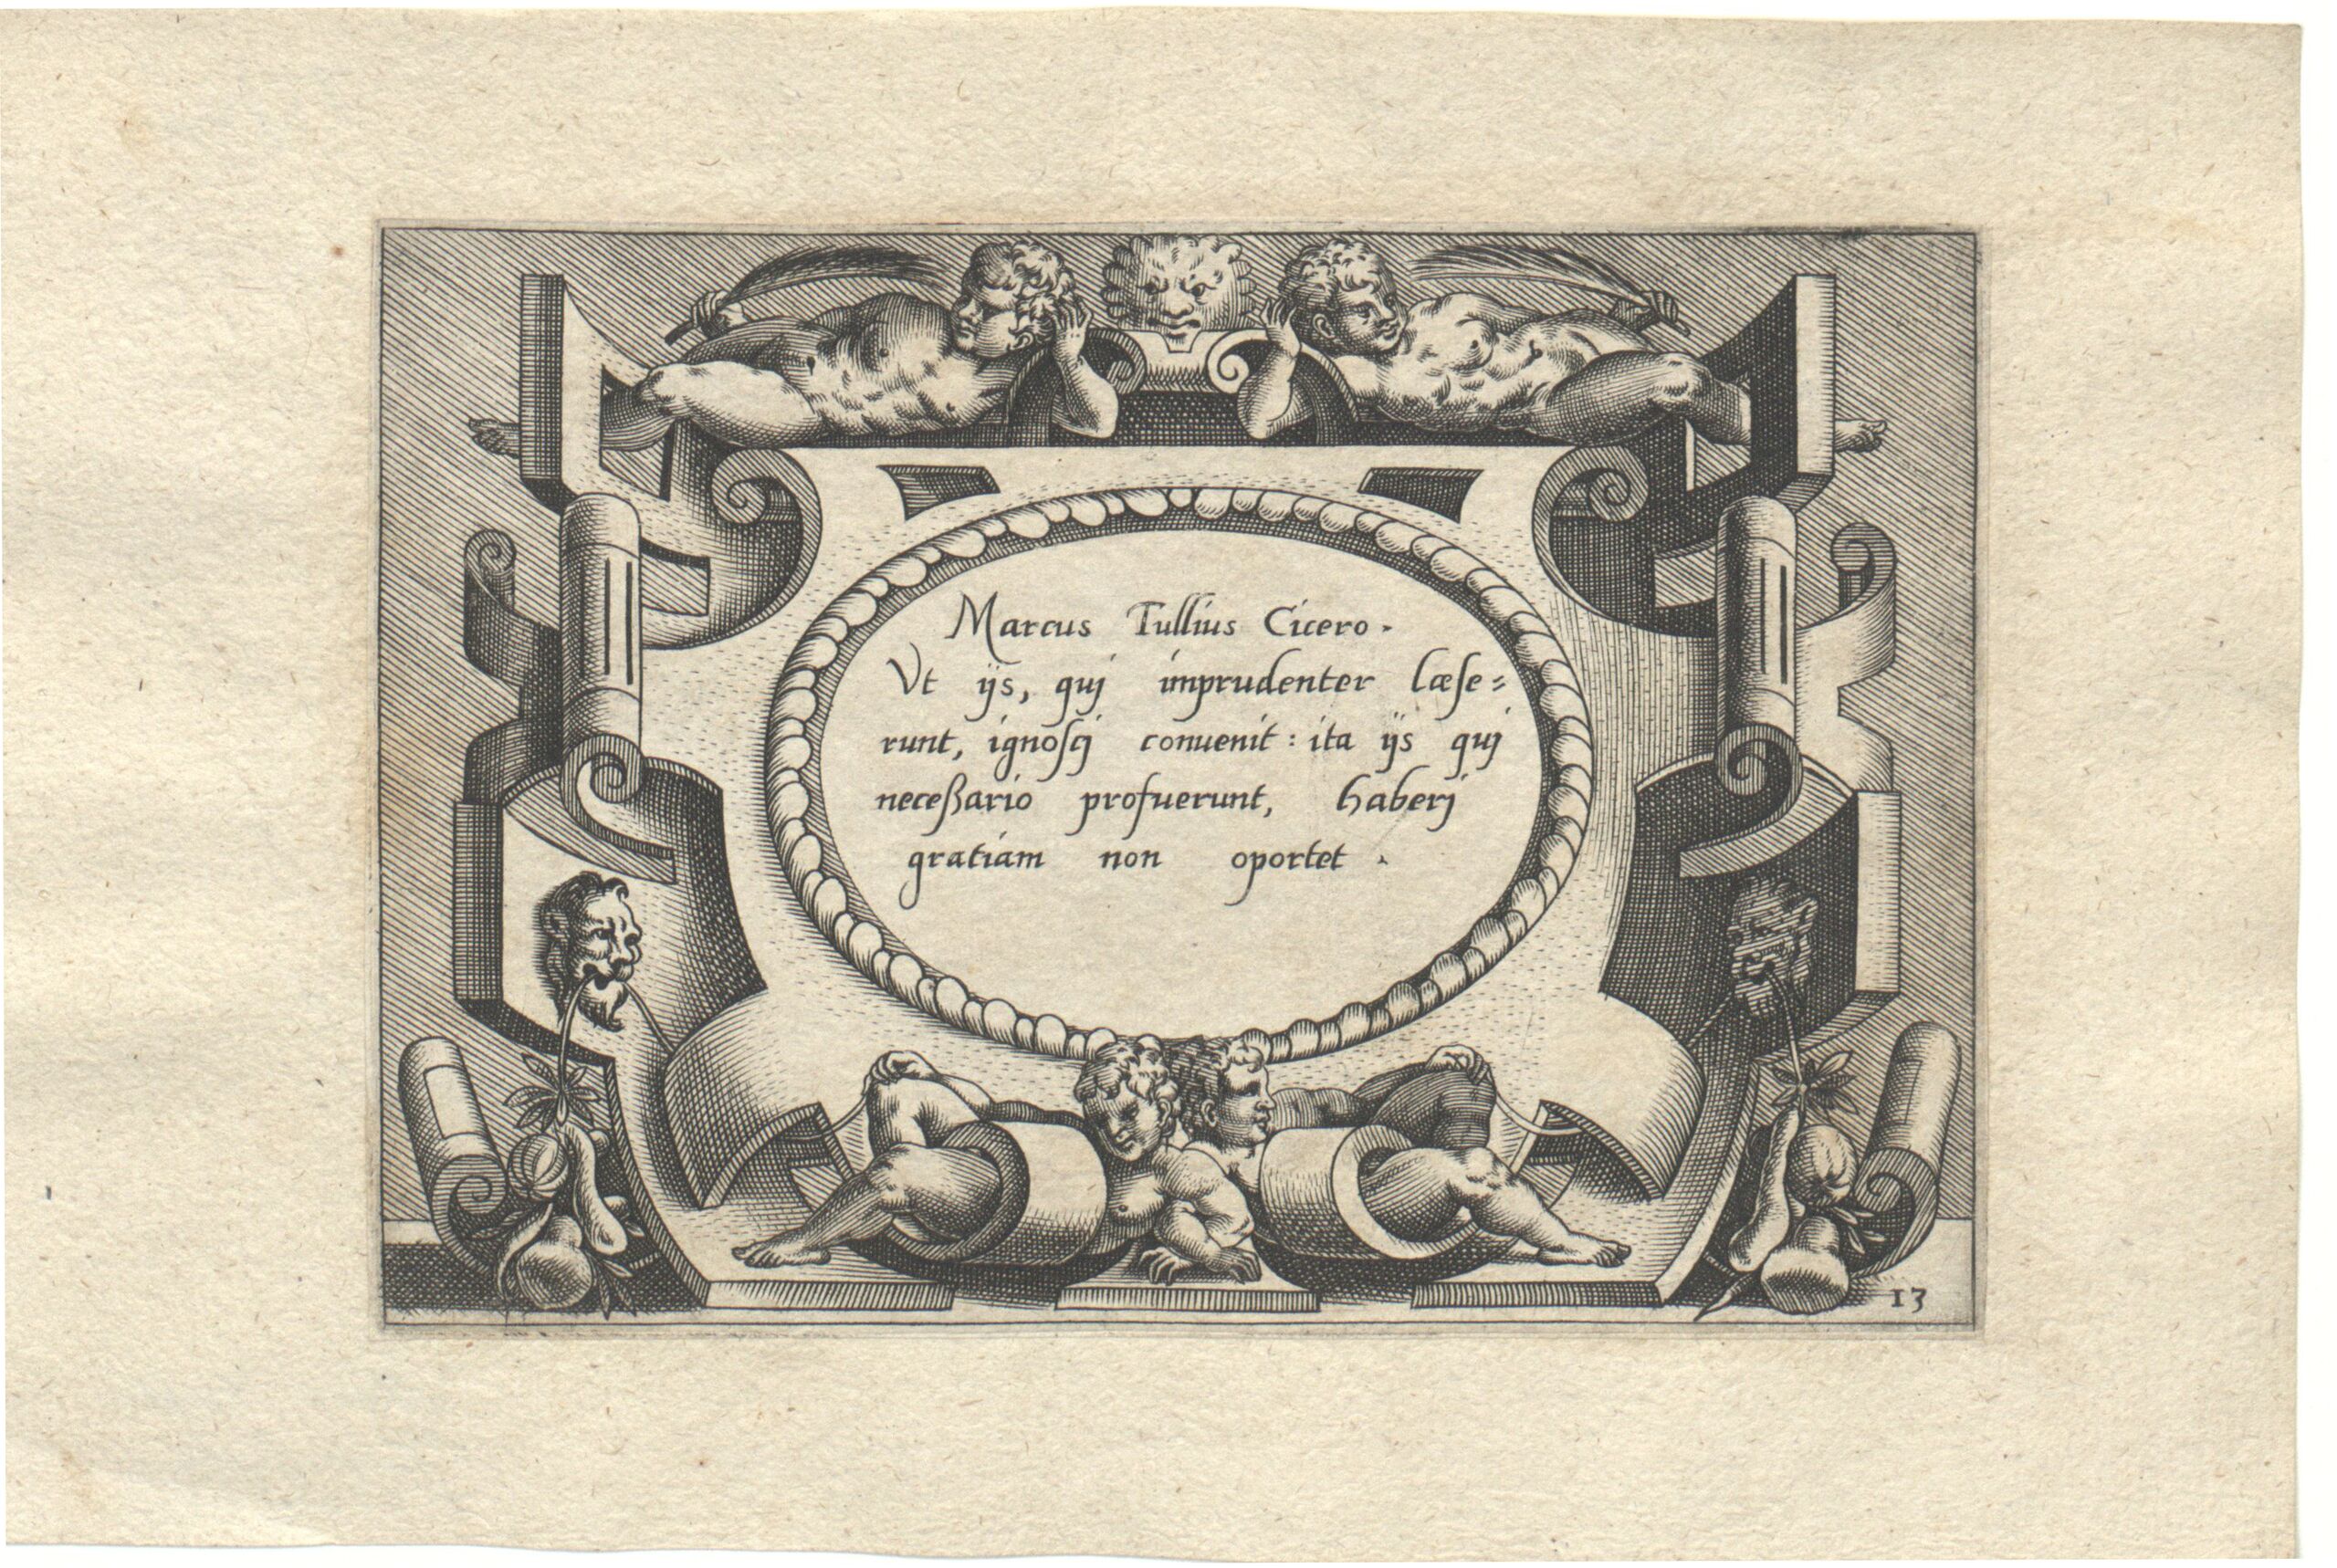 Marcus Tullius Cicero.
Vt ijs, quj imprudenter læſe=
runt, ignoſcj conuenit: ita ijs quj
neceßario profuerunt, haberj
gratiam non oportet.
13